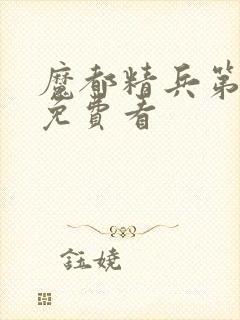 魔都精兵第
免费看
钰娆